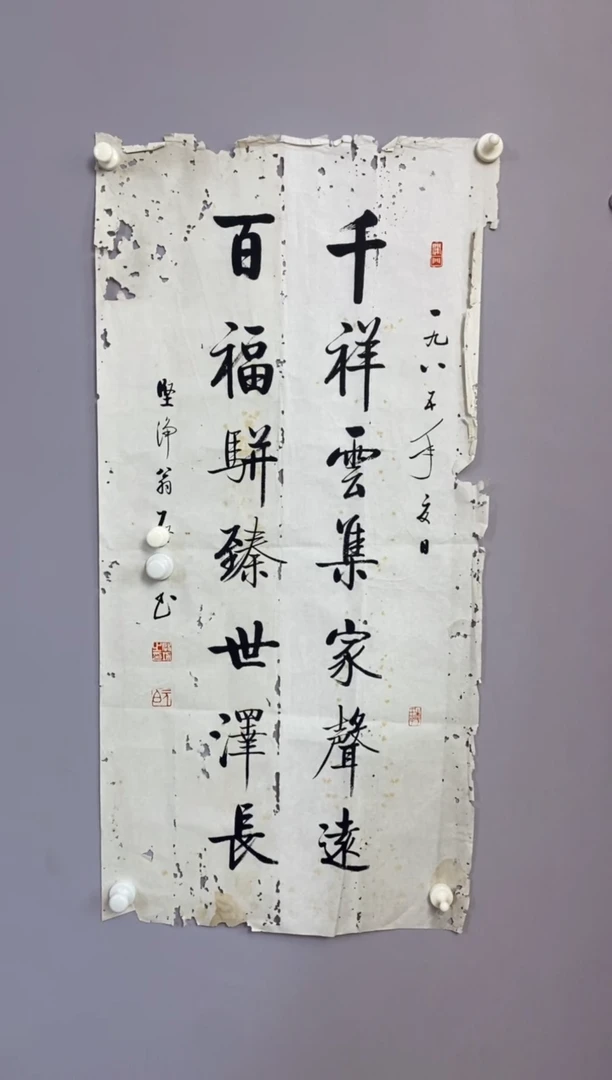 一九八五年夏日
千祥雲集家聲遠
百福駢臻世澤長
堅淨翁
书